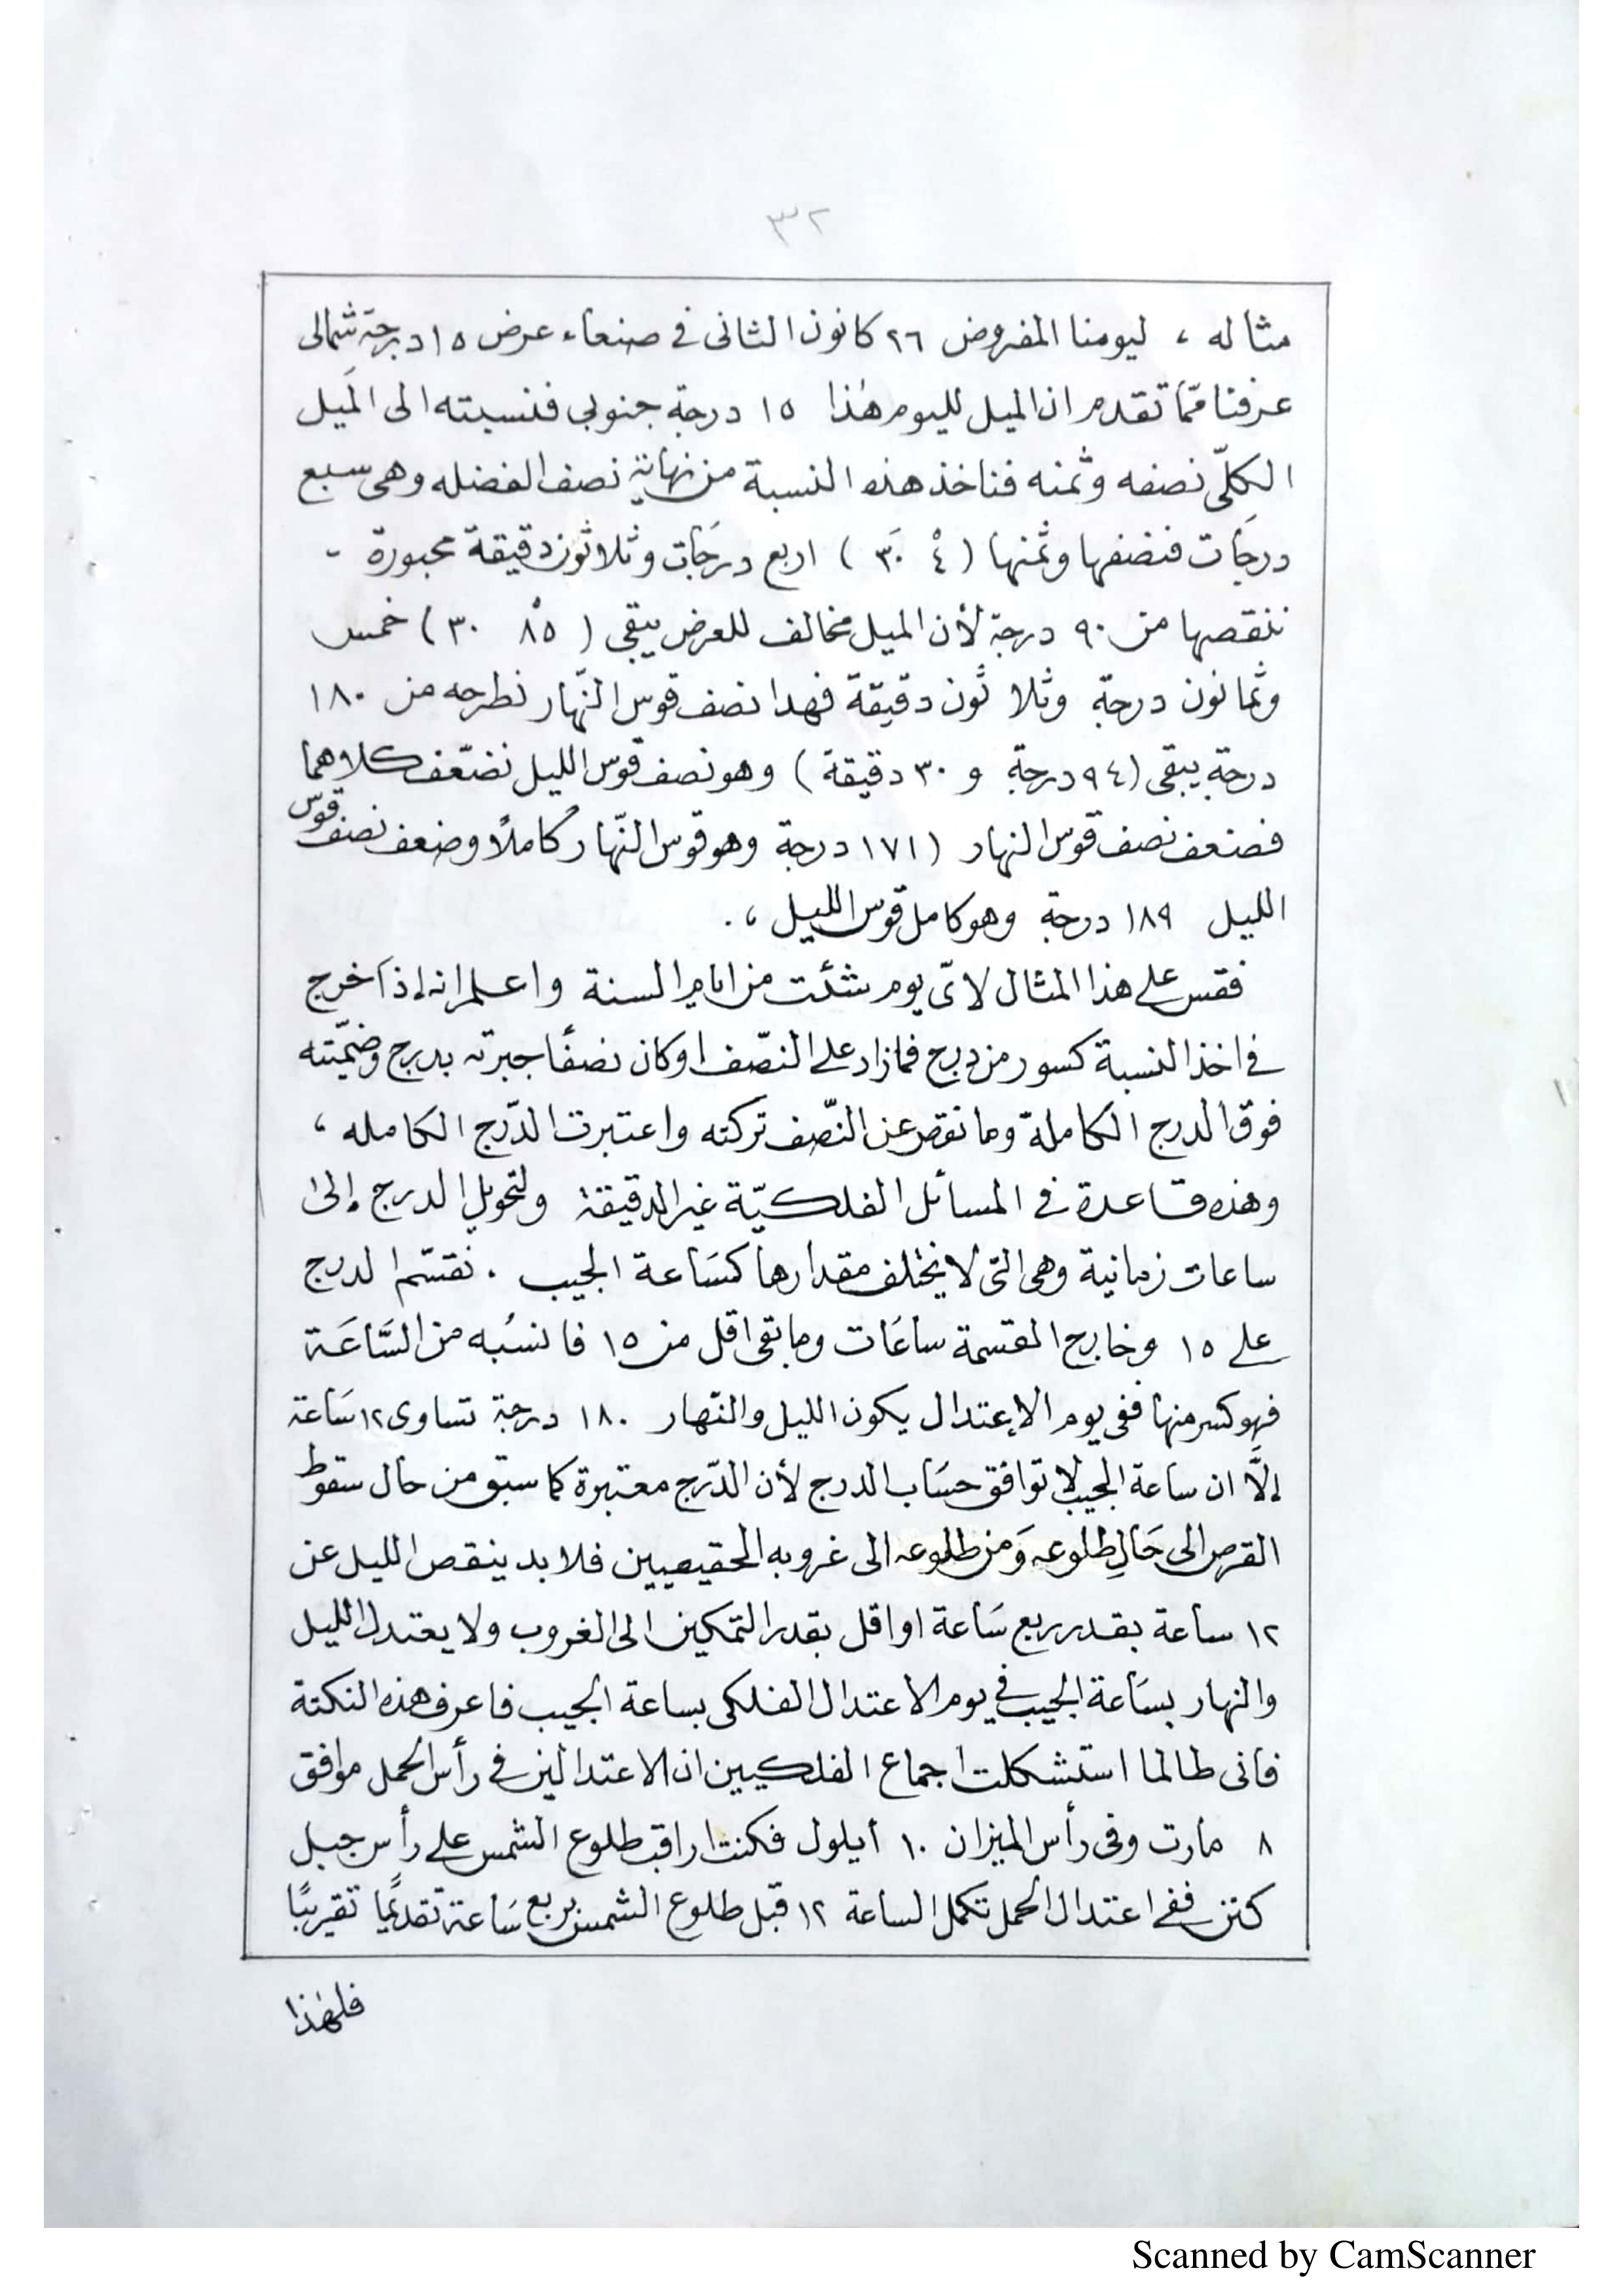 ٣٢
مثاله ، ليومنا المفروض ٢٦ كانون الثانى فى صنعاء عرض ١٥ درجة شمالى
عرفنا ممّا تقدم ان الميل لليوم هذا ١٥ درجة جنوبى فنسبته الى الميل
الكلّى نصفه وثمنه فناخذ هذه النسبة من نهاية نصف الفضله وهى سبع
درجات فنصفها وثمنها ( ٤ ٣٠ ) اربع درجات وثلاثون دقيقة مجبورة -
ننقصها من ٩٠ درجة لأن الميل مخالف للعرض يبقى ( ٨٥ ٣٠ ) خمس
وثمانون درجة وثلاثون دقيقة فهدا نصف قوس النّهار نطرحه من ١٨٠
درجة يبقى (٩٤ درجة و ٣٠ دقيقة ) وهو نصف قوس الليل نضعّف كلاهما
فضعف نصف قوس النهار (١٧١ درجة وهو قوس النّهار كاملًا وضعف نصف قوس
الليل ١٨٩ درجة وهو كامل قوس الليل ، .
فقس على هذا المثال لاىّ يوم شئت من ايام السنة واعلم انه إذا خرج
فى اخذ النسبة كسور من درج فمازاد على النصّف او كان نصفًا جبرته بدرج وضمّيته
فوق الدرج الكاملة وما نقص عن النّصف تركته واعتبرت الدّرج الكامله ،
وهذه قاعدة فى المسائل الفلكيّة غير الدقيقة ولتحويل الدرج إلى
ساعات زمانية وهى التى لا يختلف مقدارها كساعة الجيب . نقسّم الدرج
على ١٥ وخارج القسمة ساعات وما بقى اقل من ١٥ فانسبه من السَّاعَة
فهو كسر منها ففى يوم الإعتدال يكون الليل والنّهار ١٨٠ درجة تساوى ١٢ سَاعة
إلَّا ان ساعة الجيب لا توافق حسَاب الدرج لأن الدّرج معتبرة كما سبق من حال سقوط
القرص الى حَالِ طلوعه وَمن طلوعه الى غروبه الحقيقيين فلا بد ينقص الليل عن
١٢ ساعة بقدر ربع سَاعة او اقل بقدر التمكين الى الغروب ولا يعتدل الليل
والنهار بسَاعة الجيب فى يوم الاعتدال الفلكى بساعة الجيب فاعرف هذه النكتة
فانى طالما استشكلت اجماع الفلكيين ان الاعتدالين فى رأس الحمل موافق
٨ مارت وفى رأس الميزان ١٠ أيلول فكنت اراقب طلوع الشمس على رأس جبل
كنن ففى اعتدال الحمل تكمل الساعة ١٢ قبل طلوع الشمس بربع سَاعة تقديمًا تقريبًا
فلهذا
Scanned by CamScanner